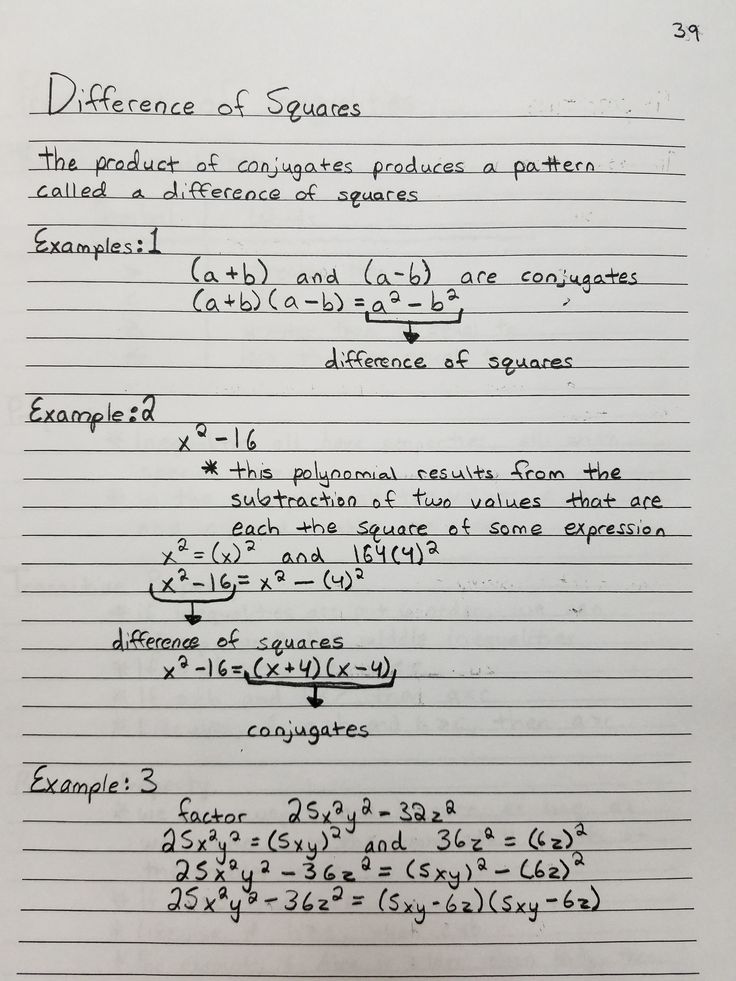 39
Difference of Squares
the product of conjugates produces a pattern
called a difference of squares
Examples: 1
(a+b) and (a-b) are conjugates
(a+b)(a-b) = a² - b²
difference of squares
Example: 2
x² - 16
* this polynomial results from the
subtraction of two values that are
each the square of some expression
x² = (x)² and 164(4)²
x² - 16 = x² - (4)²
difference of squares
x² - 16 = (x+4)(x-4)
conjugates
Example: 3
factor 25x²y² - 32z²
25x²y² = (5xy)² and 36z² = (6z)²
25x²y² - 36z² = (5xy)² - (6z)²
25x²y² - 36z² = (5xy-6z)(5xy-6z)